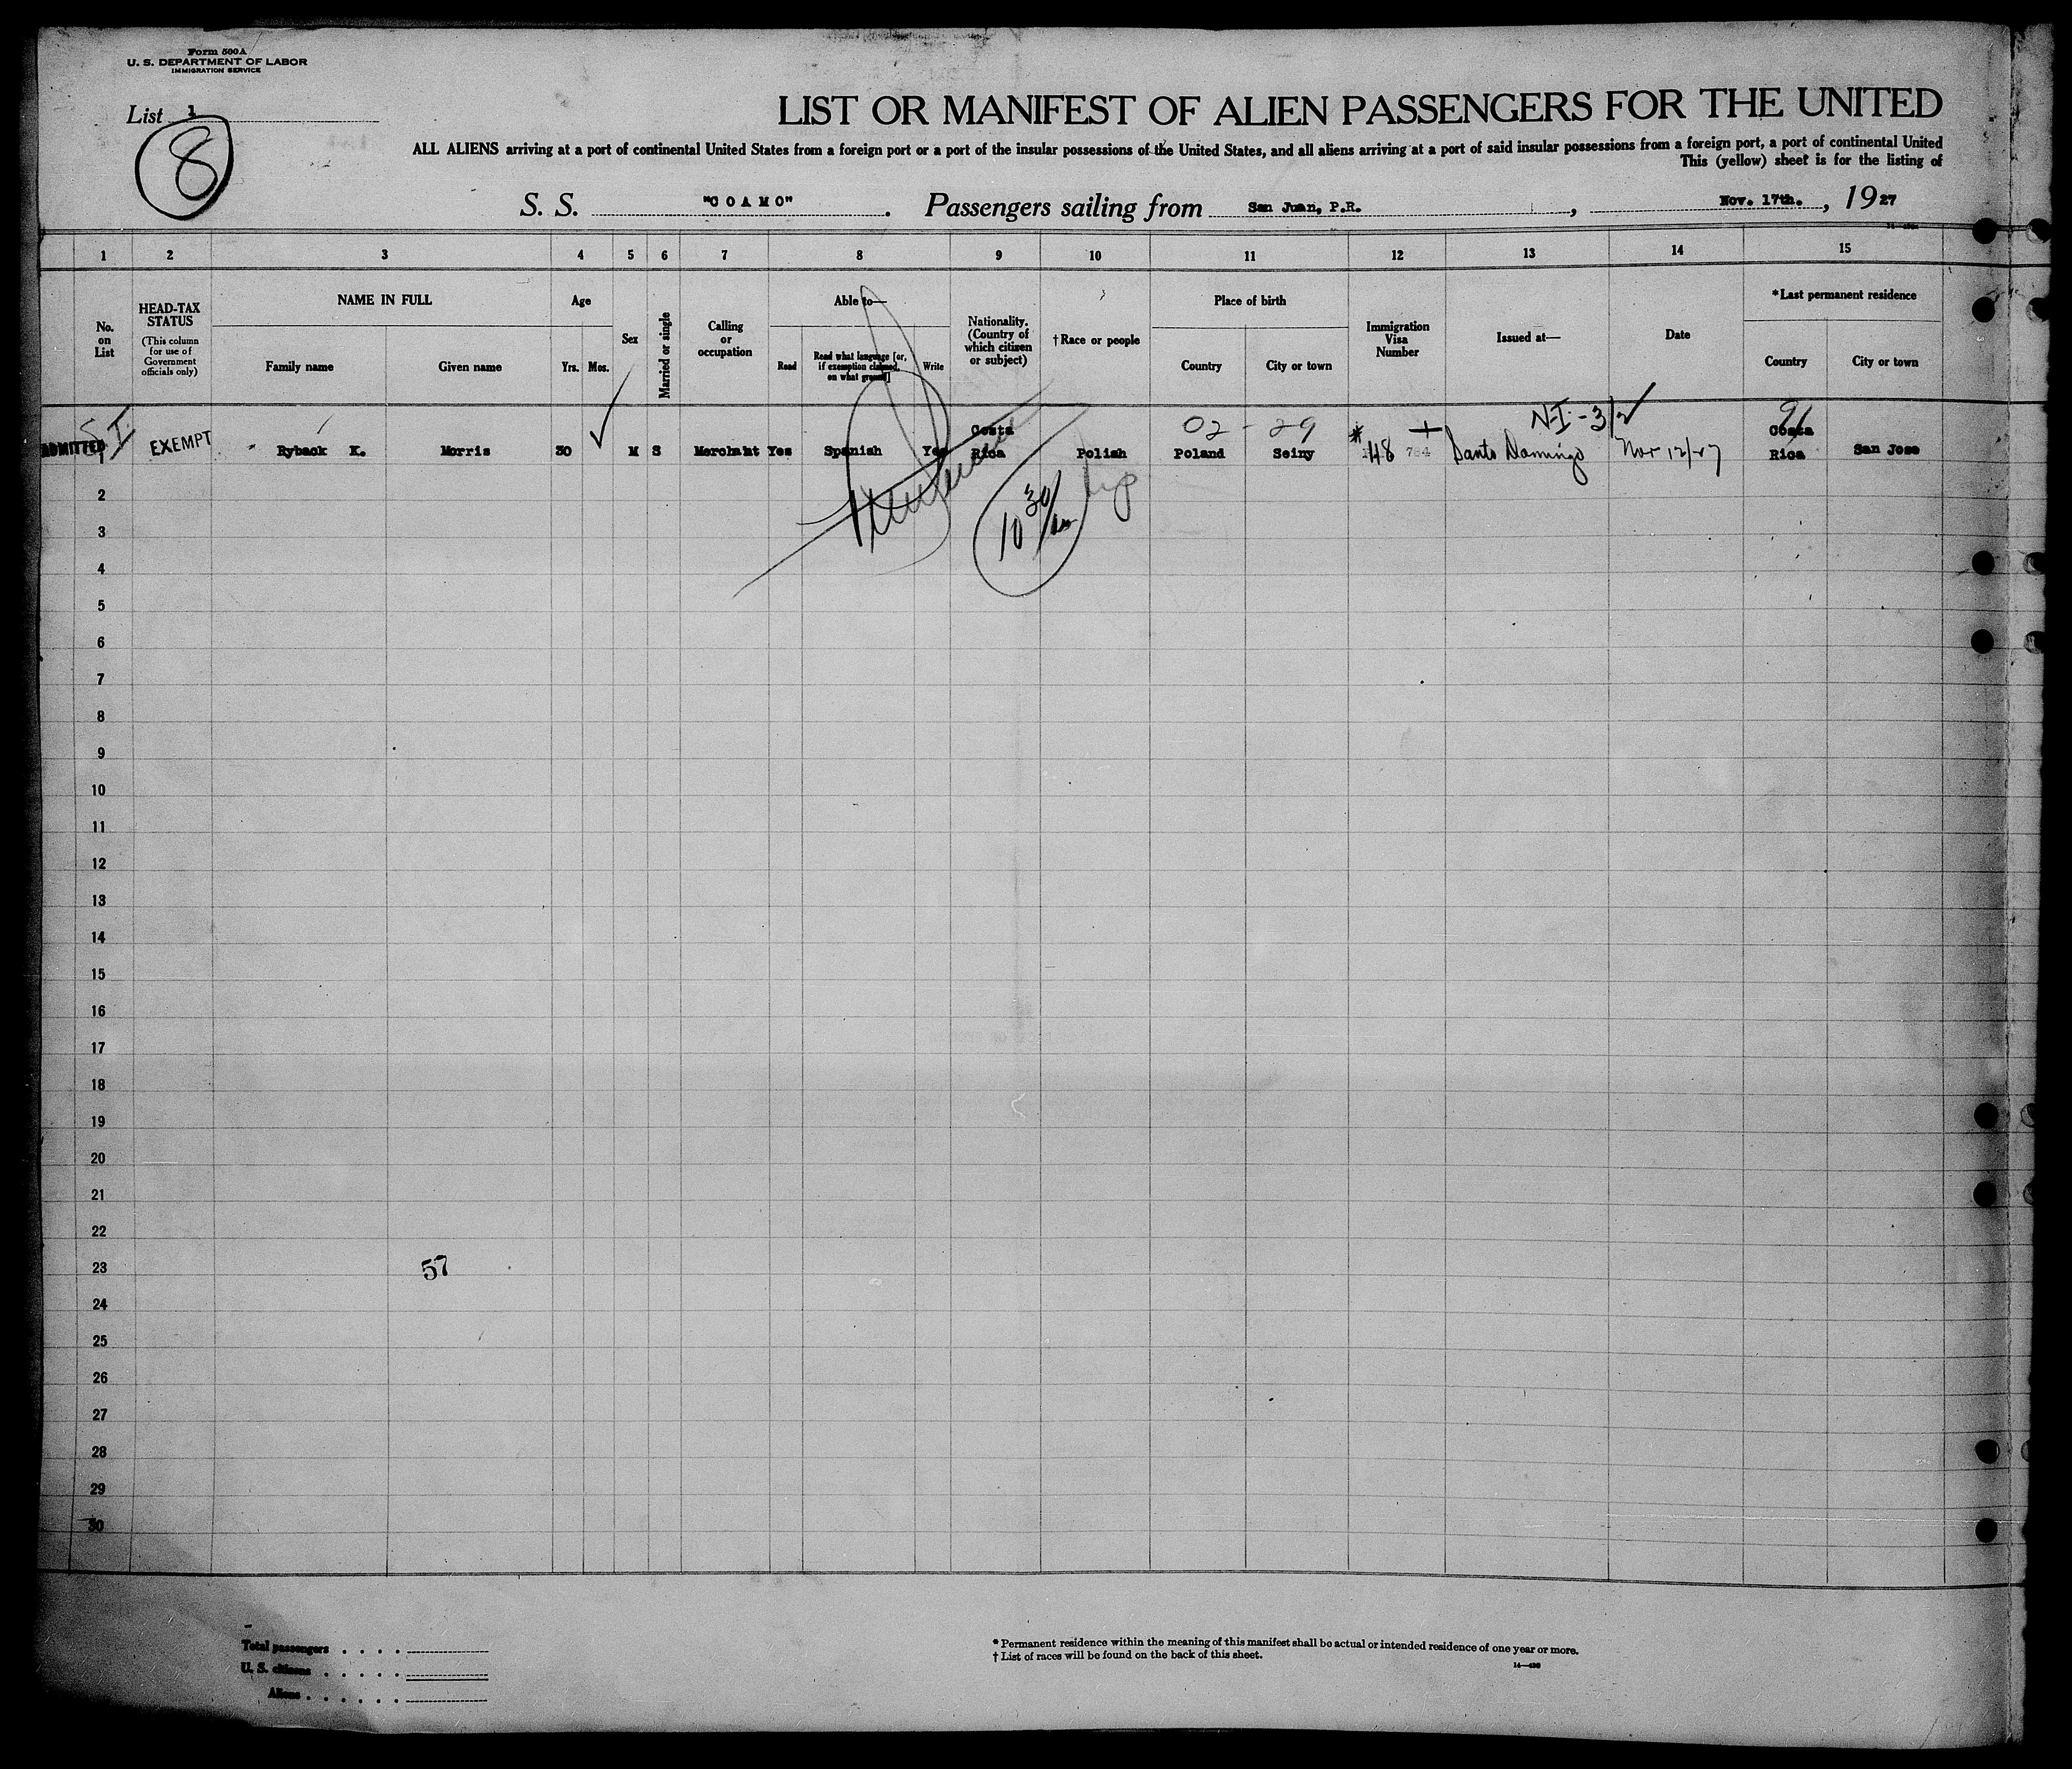 Form 500A
U. S. DEPARTMENT OF LABOR
IMMIGRATION SERVICE
List 1
8
LIST OR MANIFEST OF ALIEN PASSENGERS FOR THE UNITED
ALL ALIENS arriving at a port of continental United States from a foreign port or a port of the insular possessions of the United States, and all aliens arriving at a port of said insular possessions from a foreign port, a port of continental United
This (yellow) sheet is for the listing of
S. S. "COAMO". Passengers sailing from San Juan, P.R., Nov. 17th., 1927
1 2 3 4 5 6 7 8 9 10 11 12 13 14 15
No. on List
HEAD-TAX STATUS
(This column for use of Government officials only)
NAME IN FULL
Family name
Given name
Age
Yrs. Mos.
Sex
Married or single
Calling or occupation
Able to—
Read
Read what language [or, if exemption claimed, on what ground]
Write
Nationality. (Country of which citizen or subject)
†Race or people
Place of birth
Country
City or town
Immigration Visa Number
Issued at—
Date
*Last permanent residence
Country
City or town
02 - 29
N-I-3/2
ADMITTED
1 EXEMPT Ryback K. Morris 30 M S Merchant Yes Spanish Yes Costa Rica Polish Poland Seiny #48 784 Santo Domingo Nov 12/27 Costa Rica San Jose
10 30/am
2
3
4
5
6
7
8
9
10
11
12
13
14
15
16
17
18
19
20
21
22
23
57
24
25
26
27
28
29
30
Total passengers
U. S. citizens
Aliens
* Permanent residence within the meaning of this manifest shall be actual or intended residence of one year or more.
† List of races will be found on the back of this sheet.